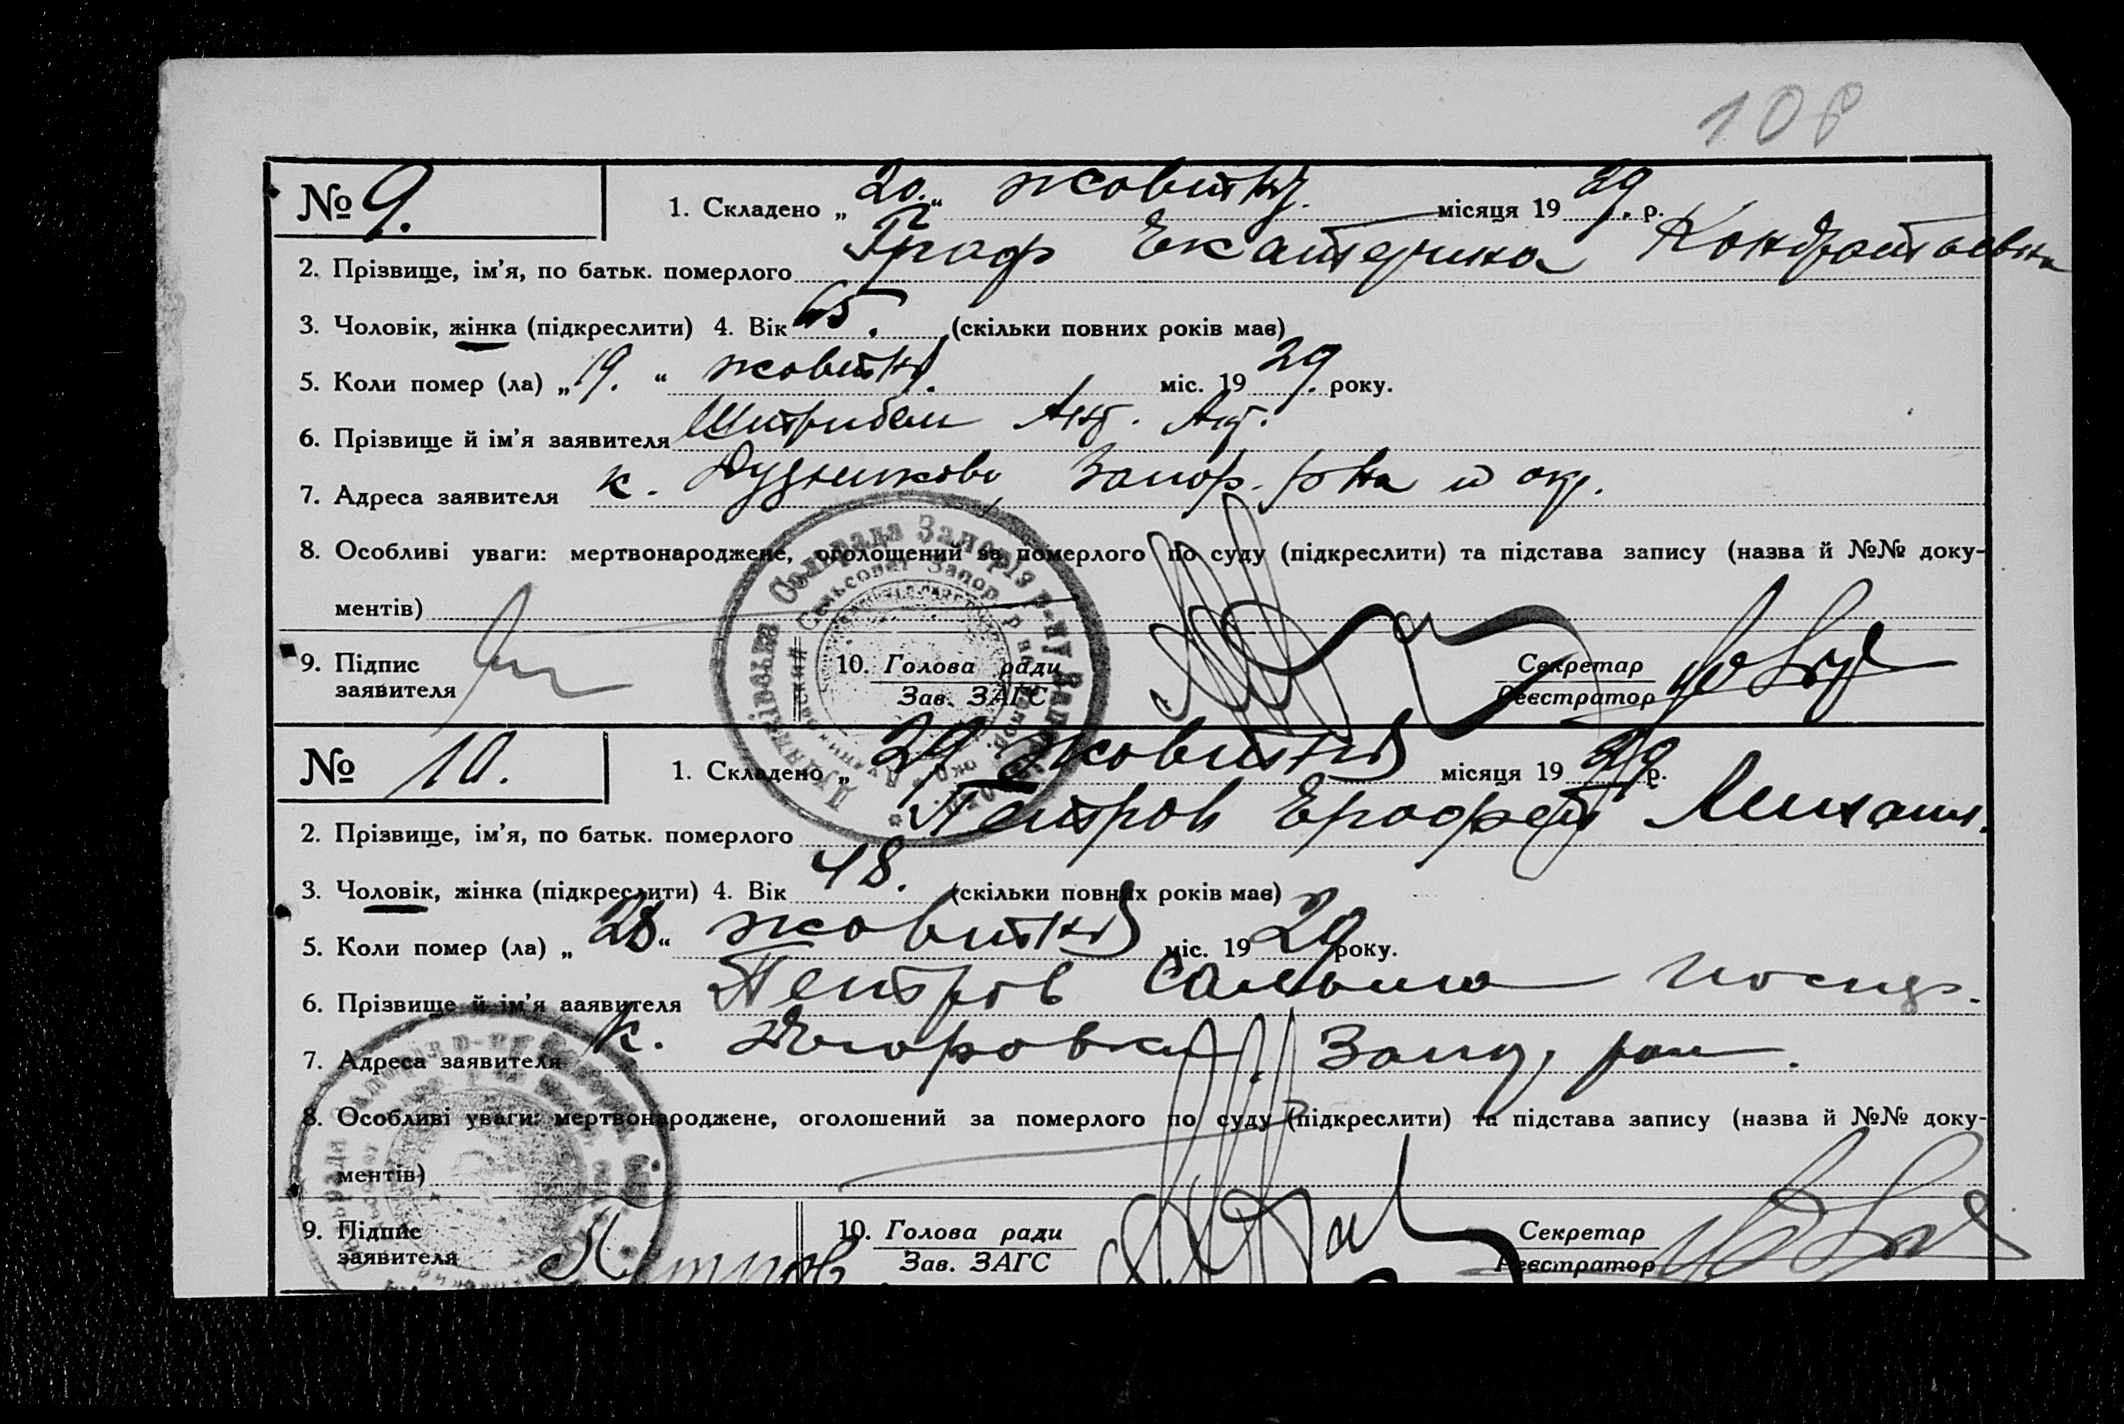 108
№ 9.
1. Складено „20.“ жовтня місяця 1929 р.
2. Прізвище, ім’я, по батьк. померлого Граф Екатерина Кондратьевна
3. Чоловік, жінка (підкреслити) 4. Вік 65. (скільки повних років має)
5. Коли помер (ла) „19.“ жовтня міс. 1929. року.
6. Прізвище й ім’я заявителя
7. Адреса заявителя к. Запор. р-на и окр.
8. Особливі уваги: мертвонароджене, оголошений за померлого по суду (підкреслити) та підстава запису (назва й №№ доку-
ментів)
9. Підпис
заявителя
10. Голова ради
Зав. ЗАГС
Секретар
Реєстратор
№ 10.
1. Складено „29 жовтня місяця 1929 р.
2. Прізвище, ім’я, по батьк. померлого Петров Ерофей Михаил.
3. Чоловік, жінка (підкреслити) 4. Вік 48. (скільки повних років має)
5. Коли помер (ла) „28“ жовтня міс. 1929 року.
6. Прізвище й ім’я заявителя Петров
7. Адреса заявителя к.
8. Особливі уваги: мертвонароджене, оголошений за померлого по суду (підкреслити) та підстава запису (назва й №№ доку-
ментів)
9. Підпис
заявителя Петров
10. Голова ради
Зав. ЗАГС
Секретар
Реєстратор